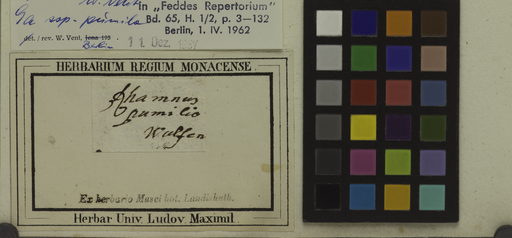 in "Feddes Repertorium"
ssp. pumila
Bd. 65, H. 1/2, p. 3—132
Berlin, 1. IV. 1962
det. / rev. W. Vent,
Berlin
11. Dez.
HERBARIUM REGIUM MONACENSE.
Rhamnus
pumilio
Wulfen
Ex herbario Musei bot. Landishuth.
Herbar. Univ. Ludov. Maximil.